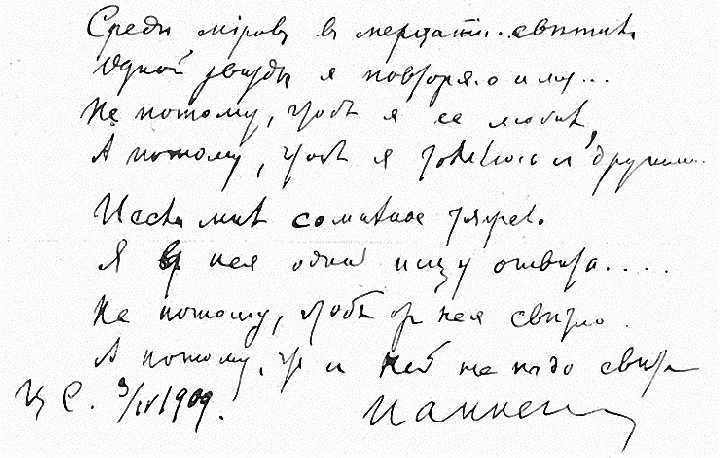 Среди мiровъ въ мерцанiи свѣтилъ
Одной звѣзды я повторяю имя...
Не потому, чтобъ я ее любилъ,
А потому, что я томлюсь съ другими.
И если мнѣ сомнѣнье тяжело.
Я у нея одной ищу отвѣта.....
Не потому, чтобъ отъ нея свѣтло.
А потому, что съ ней не надо свѣта
Ц С. 3/IV 1909.
И Анненс